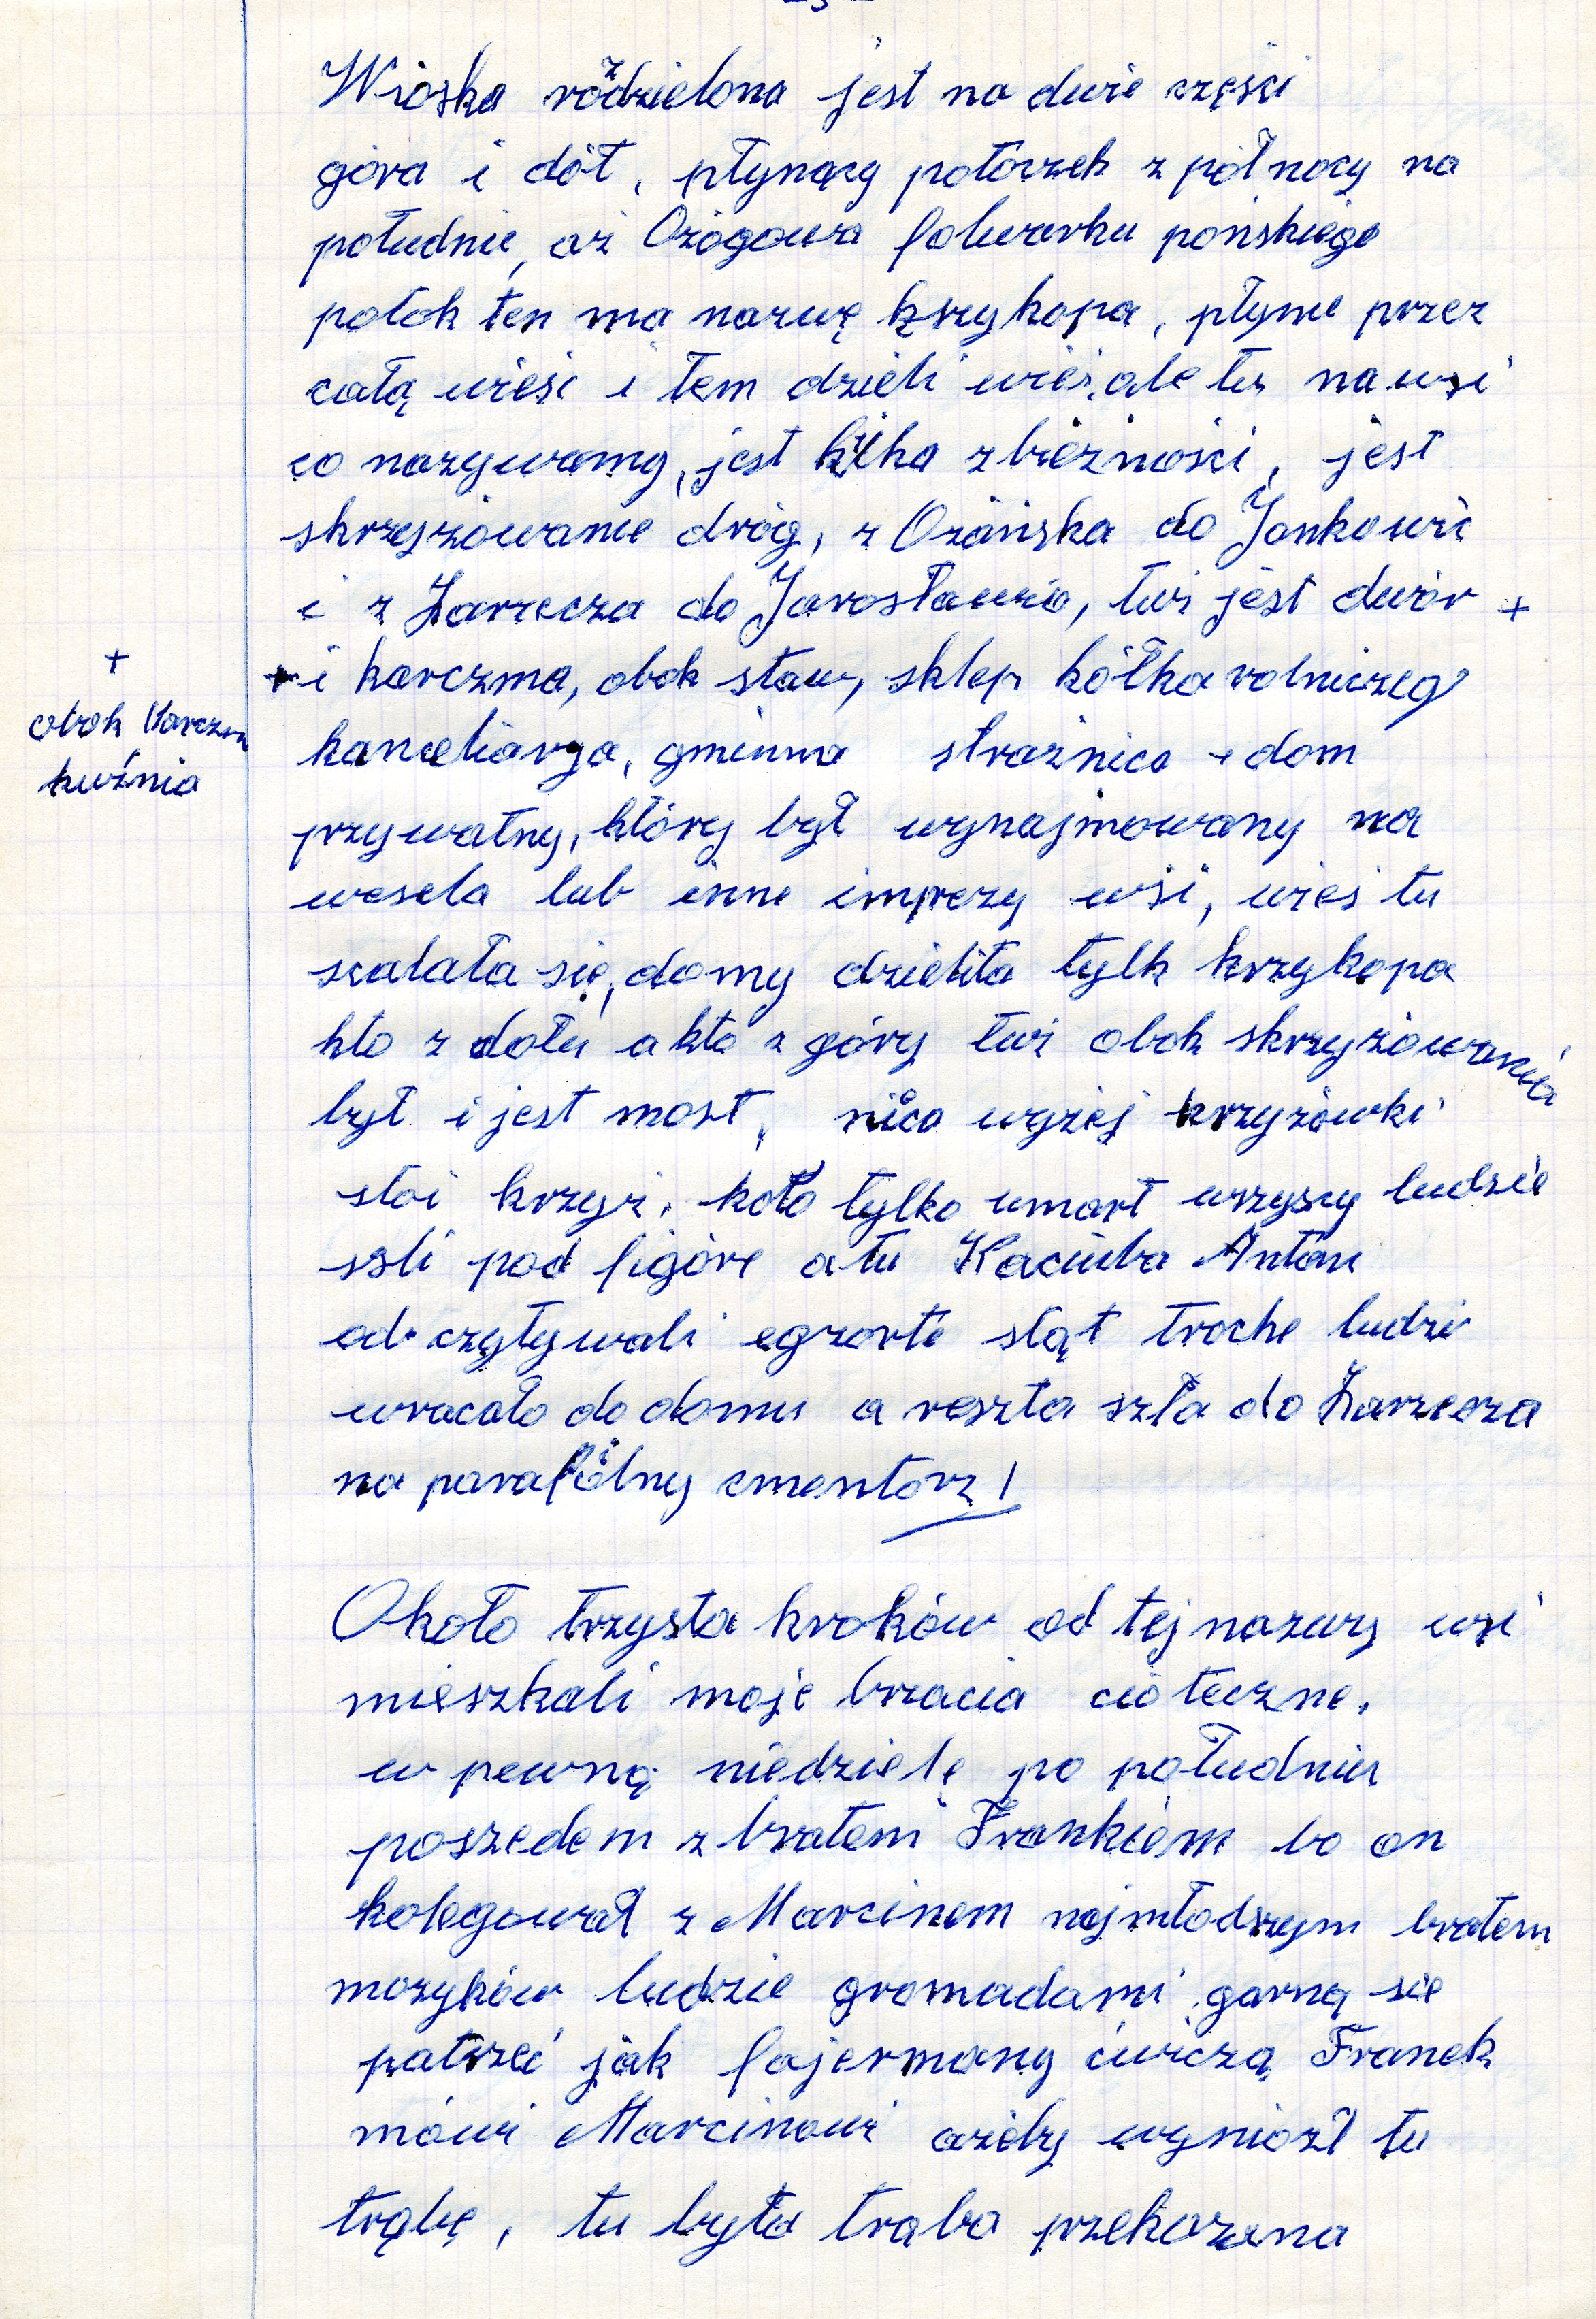 Wioska rozdzielona jest na dwie części
góra i dół, płynący potoczek z północy na
południe, aż Ożogowa folwarku pońskiego
potok ten ma nazwę krzykopa, płynie przez
całą wieść i tem dzieli wieś, ale tu na wsi
co nazywamy, jest kilka zbieżności, jest
skrzyżowanie dróg, z Ożańska do Jankowic
i z Zarzecza do Jarosławia, tuż jest dwór +
+ i karczma, obok staw, sklep kółka rolniczeg
+
obok karczm
kuźnia
kanceliarya, gminna strażnica i dom
prywatny, który był wynajmowany na
wesela lub inne imprezy wsi, wieś tu
scalała się, domy dzieliła tylk krzykopa
kto z dołu a kto z góry tuż obok skrzyżowania
był i jest most, nico wyżej krzyżówki
stoi krzyż, kto tylko umarł wszyscy ludzie
szli pod figóre a tu Kaciuba Antoni
od czytywali egzorte stąt troche ludzi
wracało do domu a reszta szła do Zarzecza
na parafiölny cmentorz!
Około trzysta kroków od tej nazwy wsi
mieszkali moje bracia cioteczne,
w pewną niedzielę po południu
poszedem z bratem Frankiem bo on
kolegował z Marcinem najmłodszym bratem
mozyków ludzie gromadami garną się
patrzeć jak fajermany ćwiczą Franek
mówi Marcinowi ażeby wyniózł tu
trąbę, tu była trąba przekazana